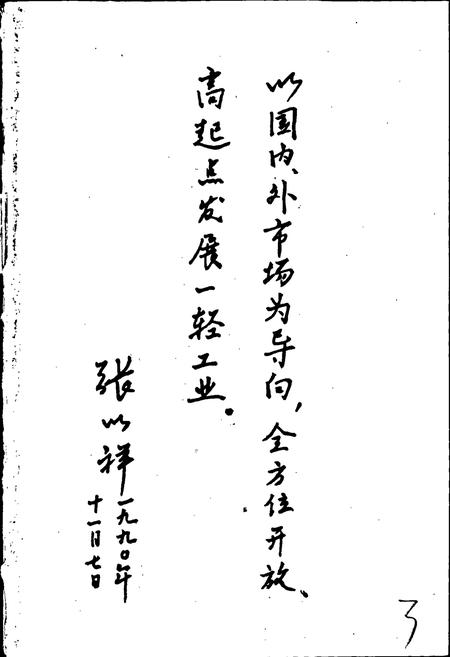 以国内、外市场为导向，全方位开放、
高起点发展一轻工业。
张以祥
一九九〇年
十一月七日
3